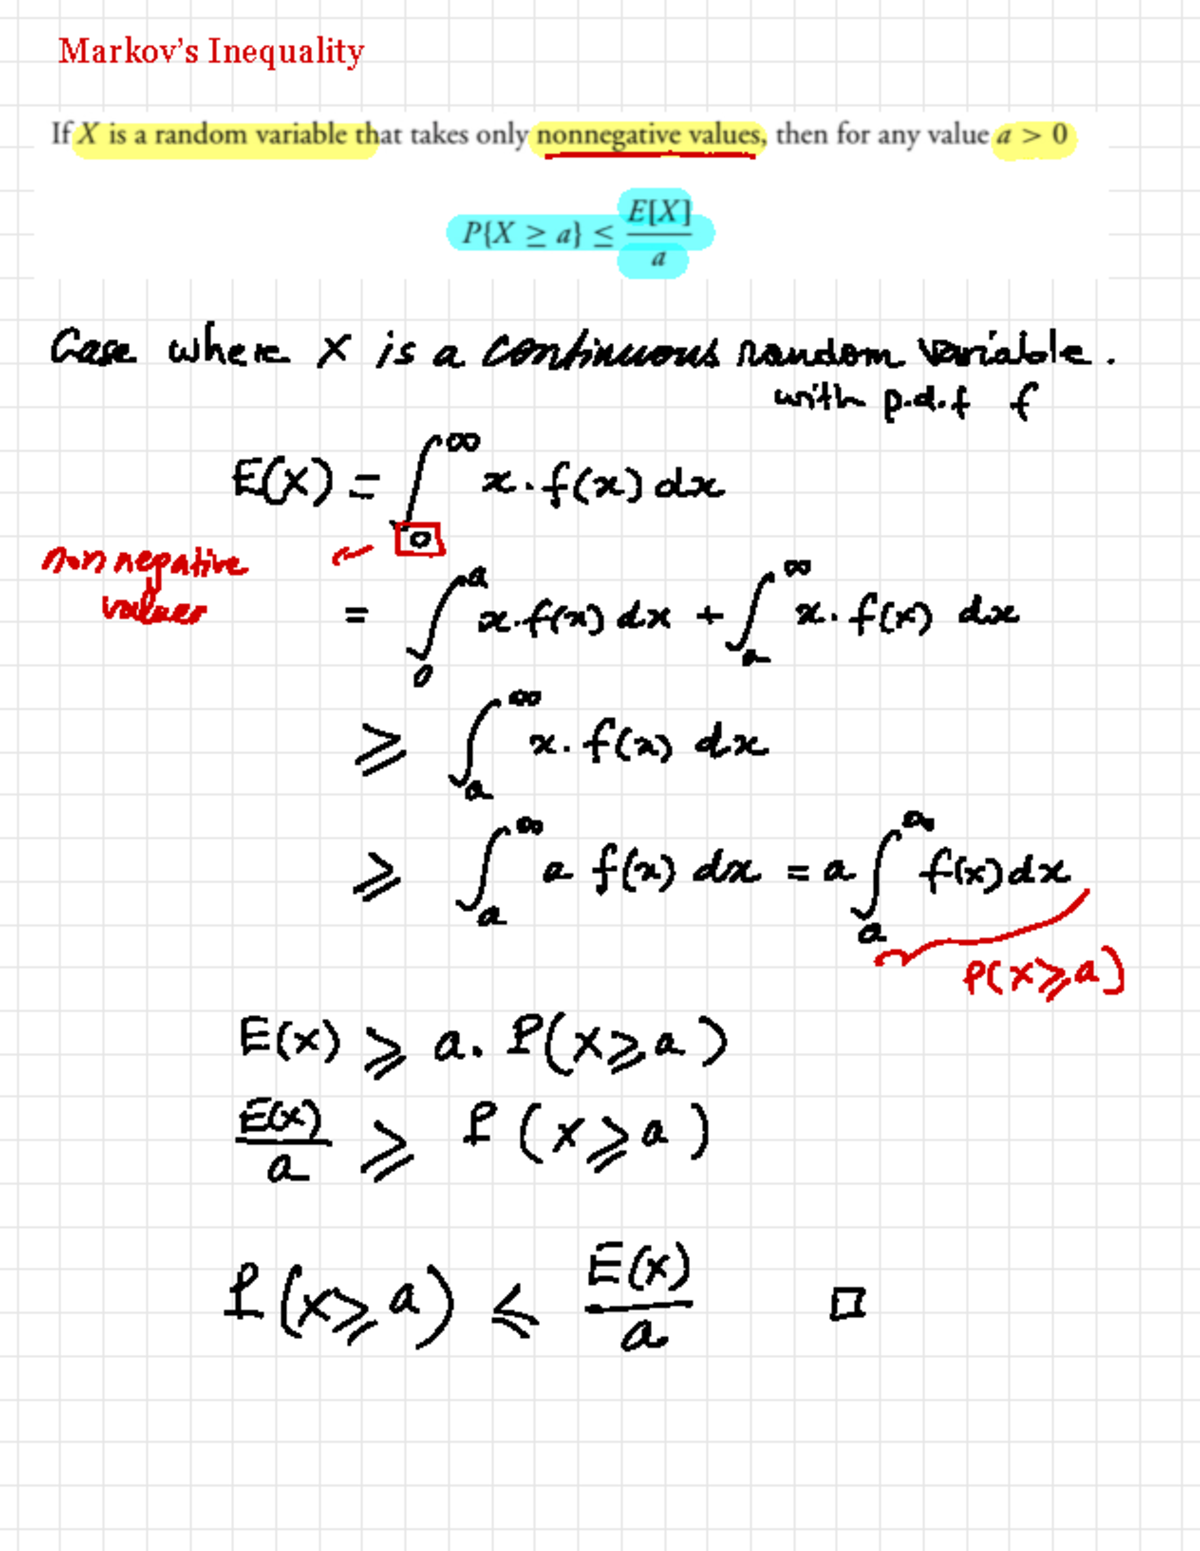 Markov's Inequality
If X is a random variable that takes only nonnegative values, then for any value a > 0
P{X ≥ a} ≤ E[X] / a
Case where X is a continuous random variable.
with p.d.f f
E(X) = ∫₀^∞ x.f(x) dx
non negative
values
= ∫₀^a x.f(x) dx + ∫ₐ^∞ x.f(x) dx
⩾ ∫ₐ^∞ x.f(x) dx
⩾ ∫ₐ^∞ a f(x) dx = a ∫ₐ^∞ f(x) dx
P(X⩾a)
E(x) ⩾ a. P(X⩾a)
E(x) / a ⩾ P(X⩾a)
P(X⩾a) ⩽ E(x) / a □